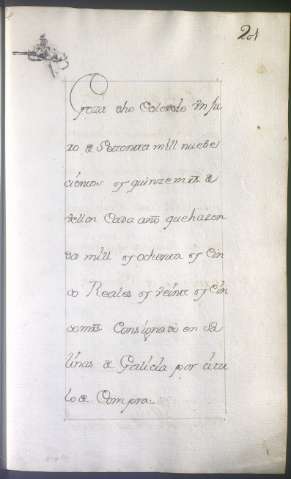 201
Goza dho Colexio Un Ju
ro de Settenta mill nuebe
cientos y quinze mrs de
vellon Cada año que hazen
dos mill y ochenta y Cin
co Reales y veinte y cin
co mrs Consignado en Sa
linas de Galicia por titu
lo de Compra